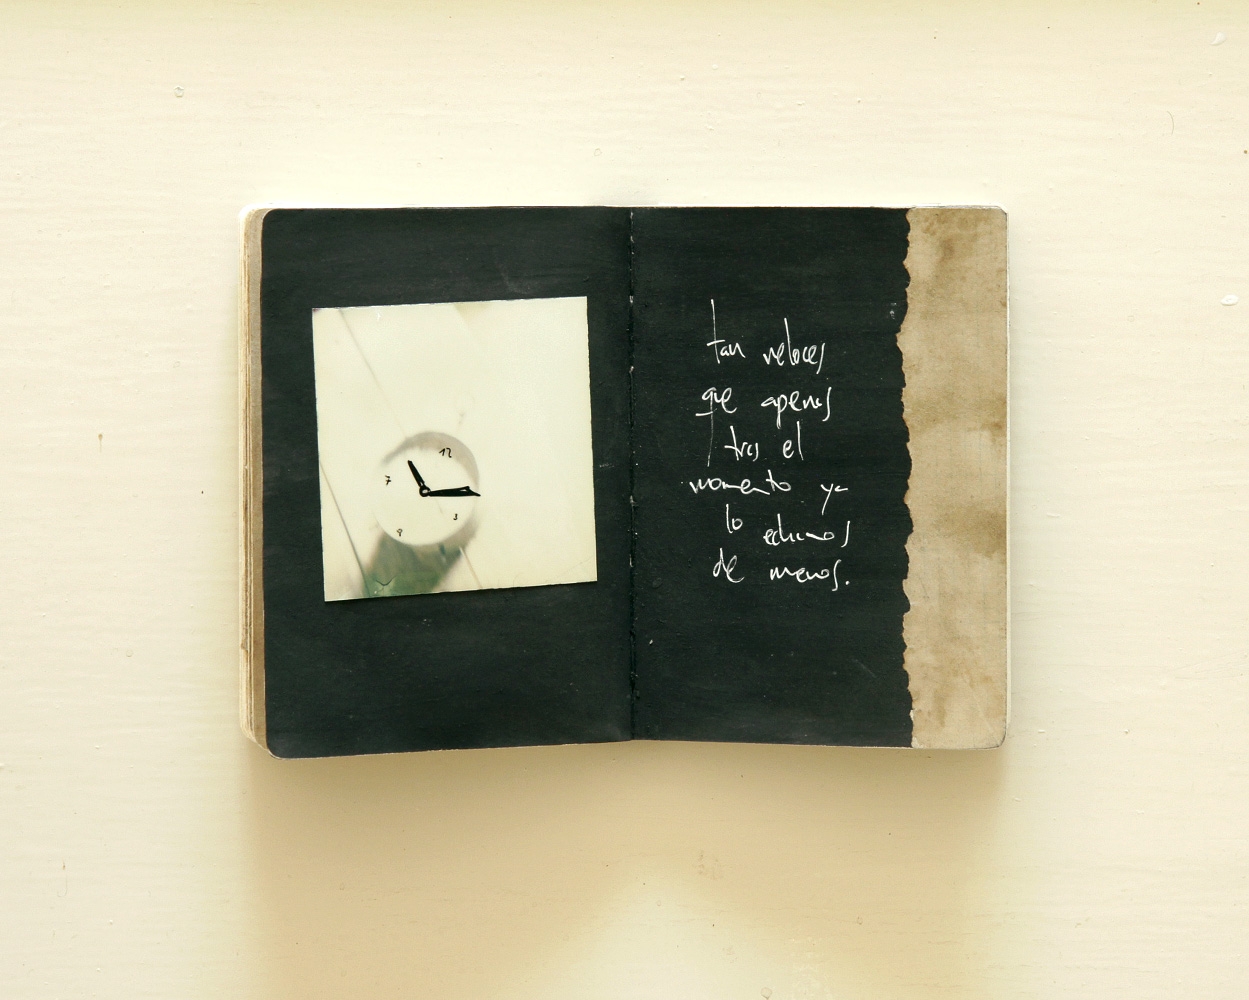 12
7
3
9
tan veloces
que apenas
tras el
momento ya
lo echamos
de menos.